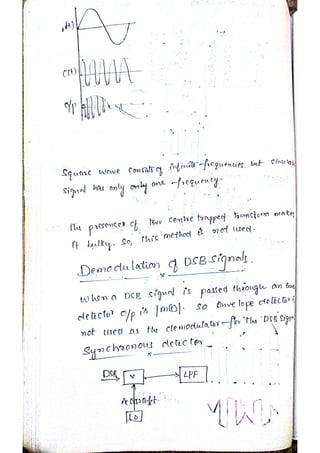 C(t)
o/p
Square wave consists of infinite frequencies. but
signal has only only one frequency.
The presence of two centre trapped transform makes
it bulky. So, this method is not used.
Demodulation of DSB signals.
When a DSB signal is passed through an
detector o/p is |m(t)|. So envelope detector is
not used as the demodulator for the DSB signal
Synchronous detector
DSB
x
LPF
LO